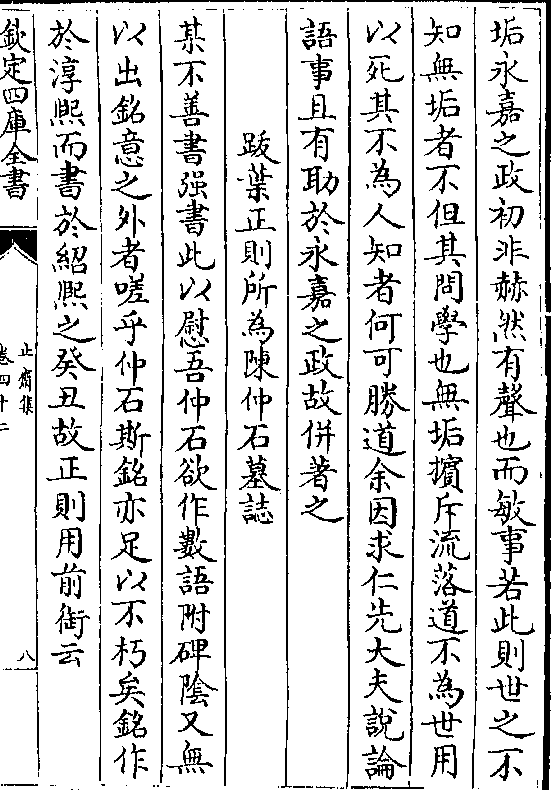 垢永嘉之政初非赫然有聲也而敏事若此則世之不
知無垢者不但其問學也無垢擯斥流落道不為世用
以死其不為人知者何可勝道余因求仁先大夫說論
語事且有助於永嘉之政故併著之
跋葉正則所為陳仲石墓誌
某不善書强書此以慰吾仲石欲作數語附碑陰又無
以出銘意之外者嗟乎仲石斯銘亦足以不朽矣銘作
於淳熙而書於紹熙之癸丑故正則用前銜云
欽定四庫全書
止齋集
卷四十二
八